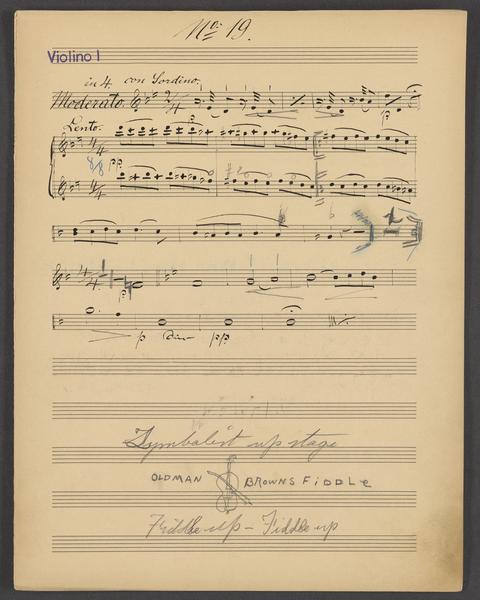 No. 19.
Violino 1
in 4. con Sordino.
Moderato.
Lento.
pp.
p Dim pp.
Zymbalist up stage
OLDMAN BROWNS FiDDLe
Fiddle up - Fiddle up